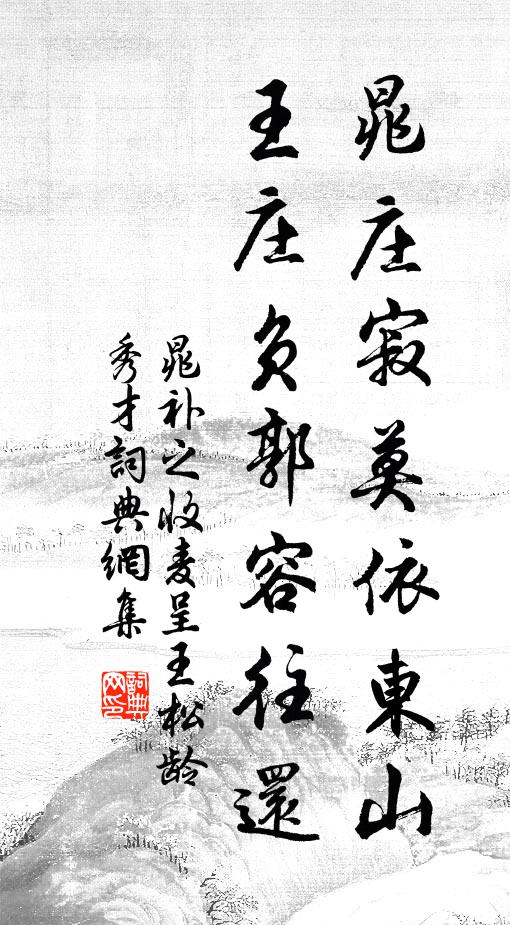 晁庄寂莫依東山
王庄负郭容往還
晁补之收麦呈王松龄
秀才詞典網集
詞典网印